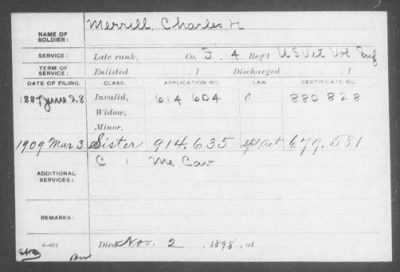 NAME OF
SOLDIER:
Merrill, Charles H
SERVICE:
Late rank, Co. I, 4 Reg't U S Vet Vol Inf
TERM OF
SERVICE:
Enlisted 1 Discharged 1
DATE OF FILING. CLASS. APPLICATION NO. LAW. CERTIFICATE NO.
1887 June 28 Invalid, 614604 880828
Widow,
Minor,
1909 Mar 3 Sister 914,635 Spl. Act 679,581
C 1 Me Cav
ADDITIONAL
SERVICES:
REMARKS:
Died Nov. 2, 1898, at